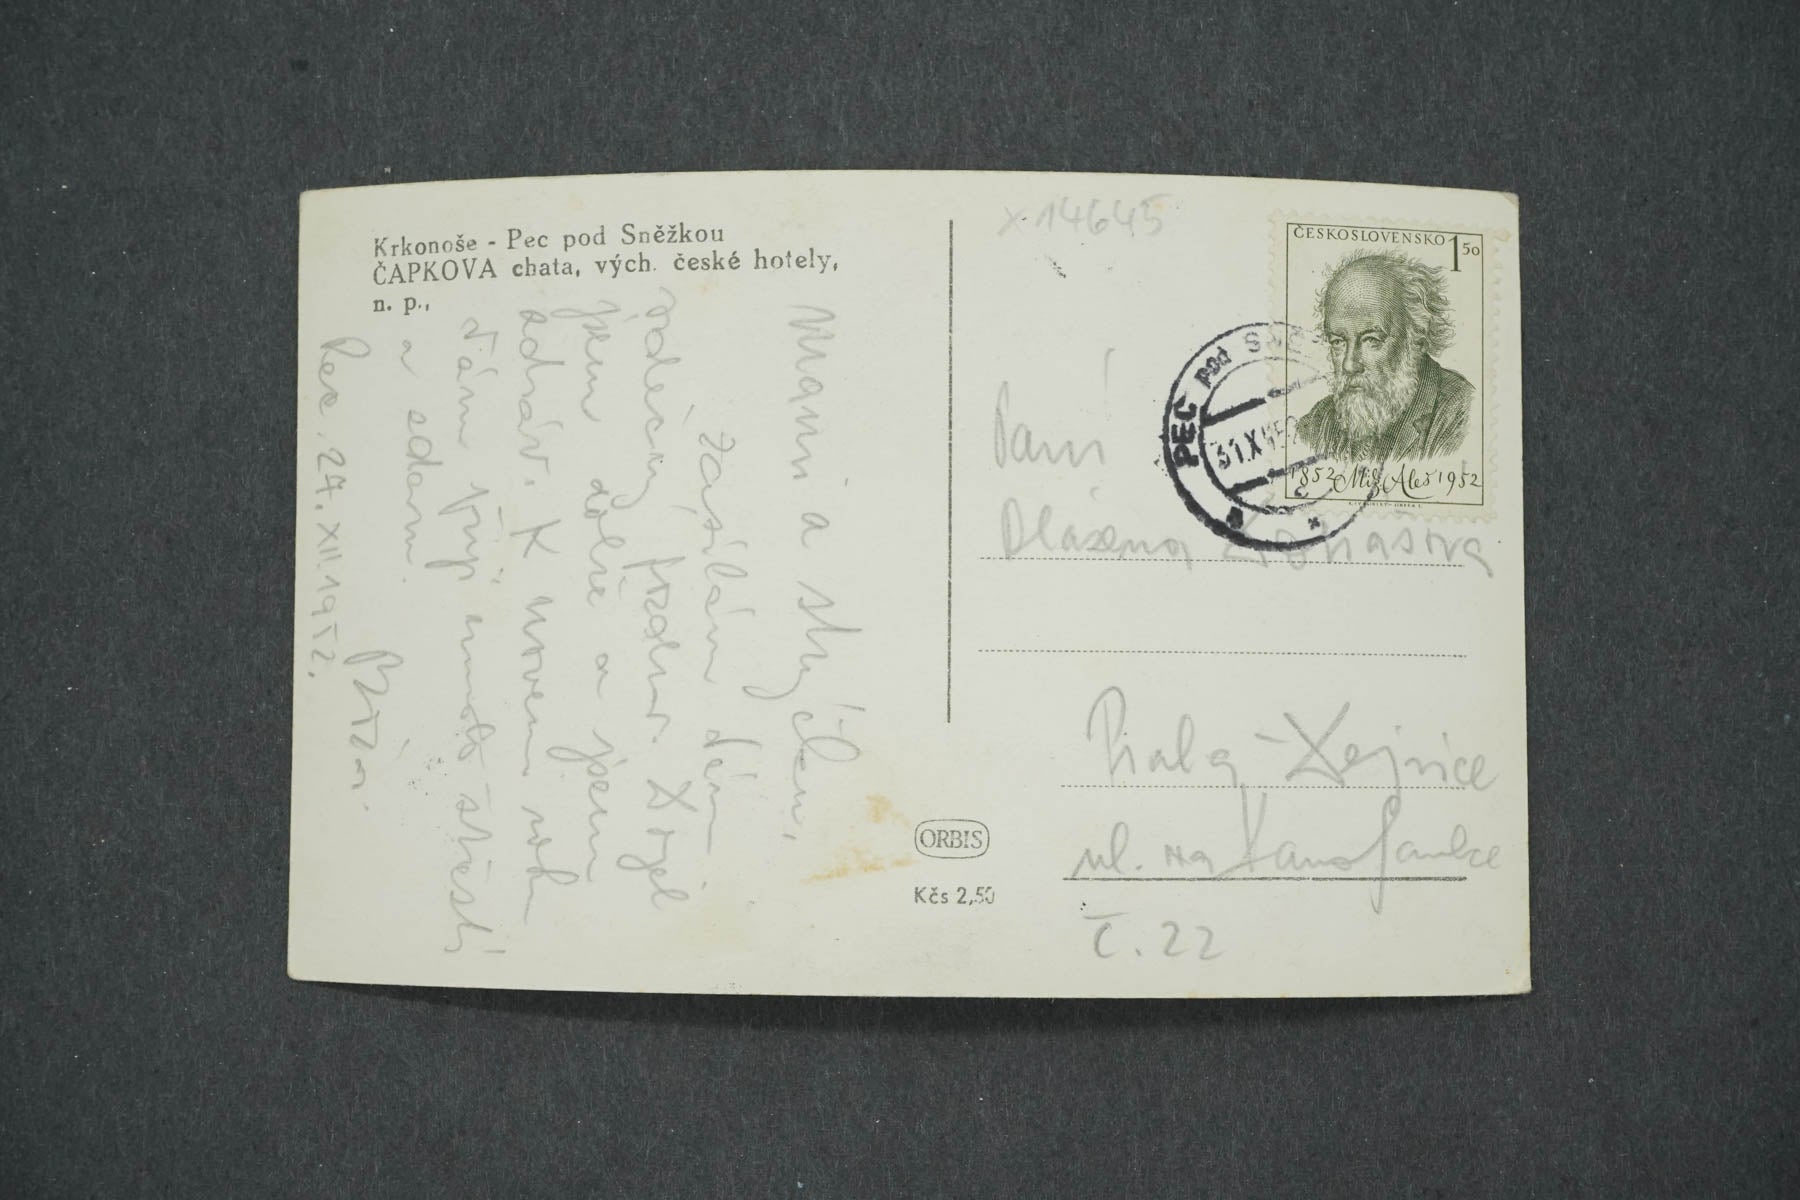 Krkonoše - Pec pod Sněžkou
ČAPKOVA chata, vých. české hotely,
n. p.,
Mami a strýčku,
zasílám Vám
srdečný pozdrav. Dojel
jsem dobře a jsem
zdráv. K novému roku
Vám přeji mnoho štěstí
a zdaru.
Pec, 27. XII. 1952.
x 14645
ČESKOSLOVENSKO 1 50
1852 Mik Aleš 1952
PEC pod
Paní
Blažena
Praha - Dejvice
ul. na
č. 22
ORBIS
Kčs 2,50